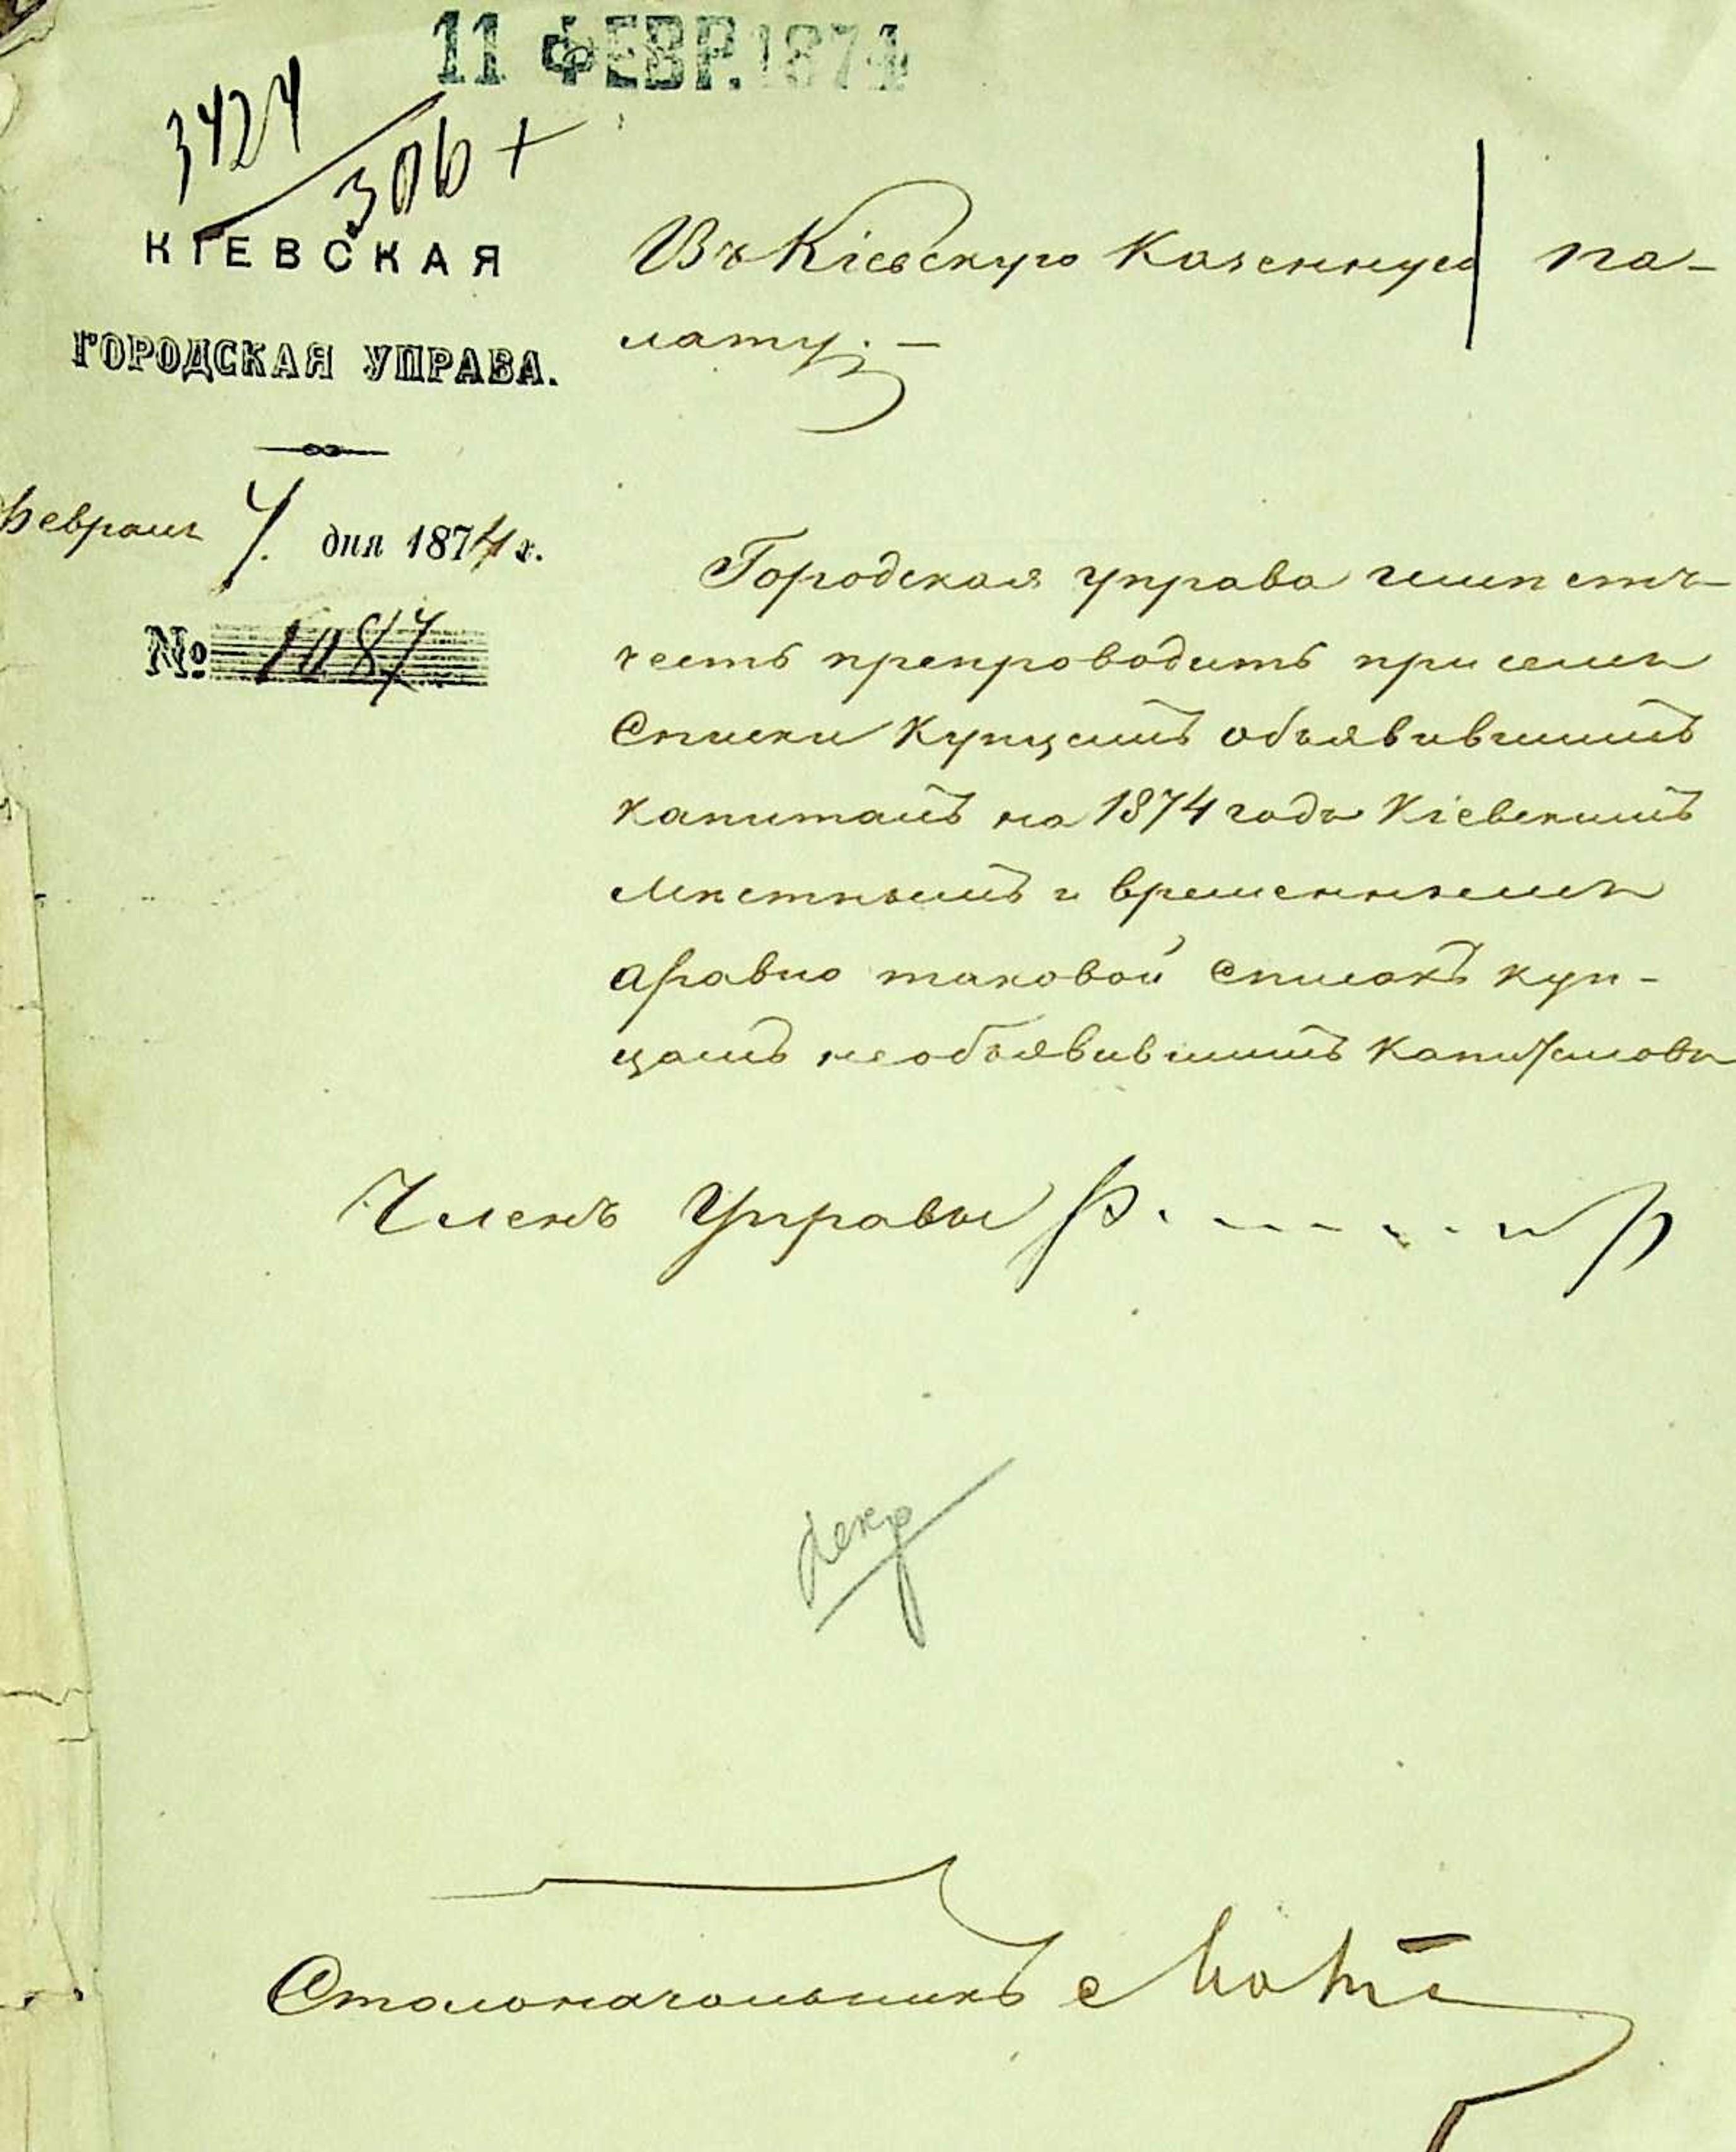 11 ФЕВР. 1874
3424
306 +
КІЕВСКАЯ
ГОРОДСКАЯ УПРАВА.
Февраля 7. дня 1874 г.
№ 1087
Въ Кіевскую Казенную па-
лату. —
Городская управа имѣетъ
честь препроводить при семъ
Списки Купцамъ объявившимъ
капиталъ на 1874 годъ Кіевскимъ
Мѣстнымъ и временнымъ
аравно таковой списокъ куп-
цамъ необъявившимъ Капиталовъ
Членъ Управы
Столоначальникъ